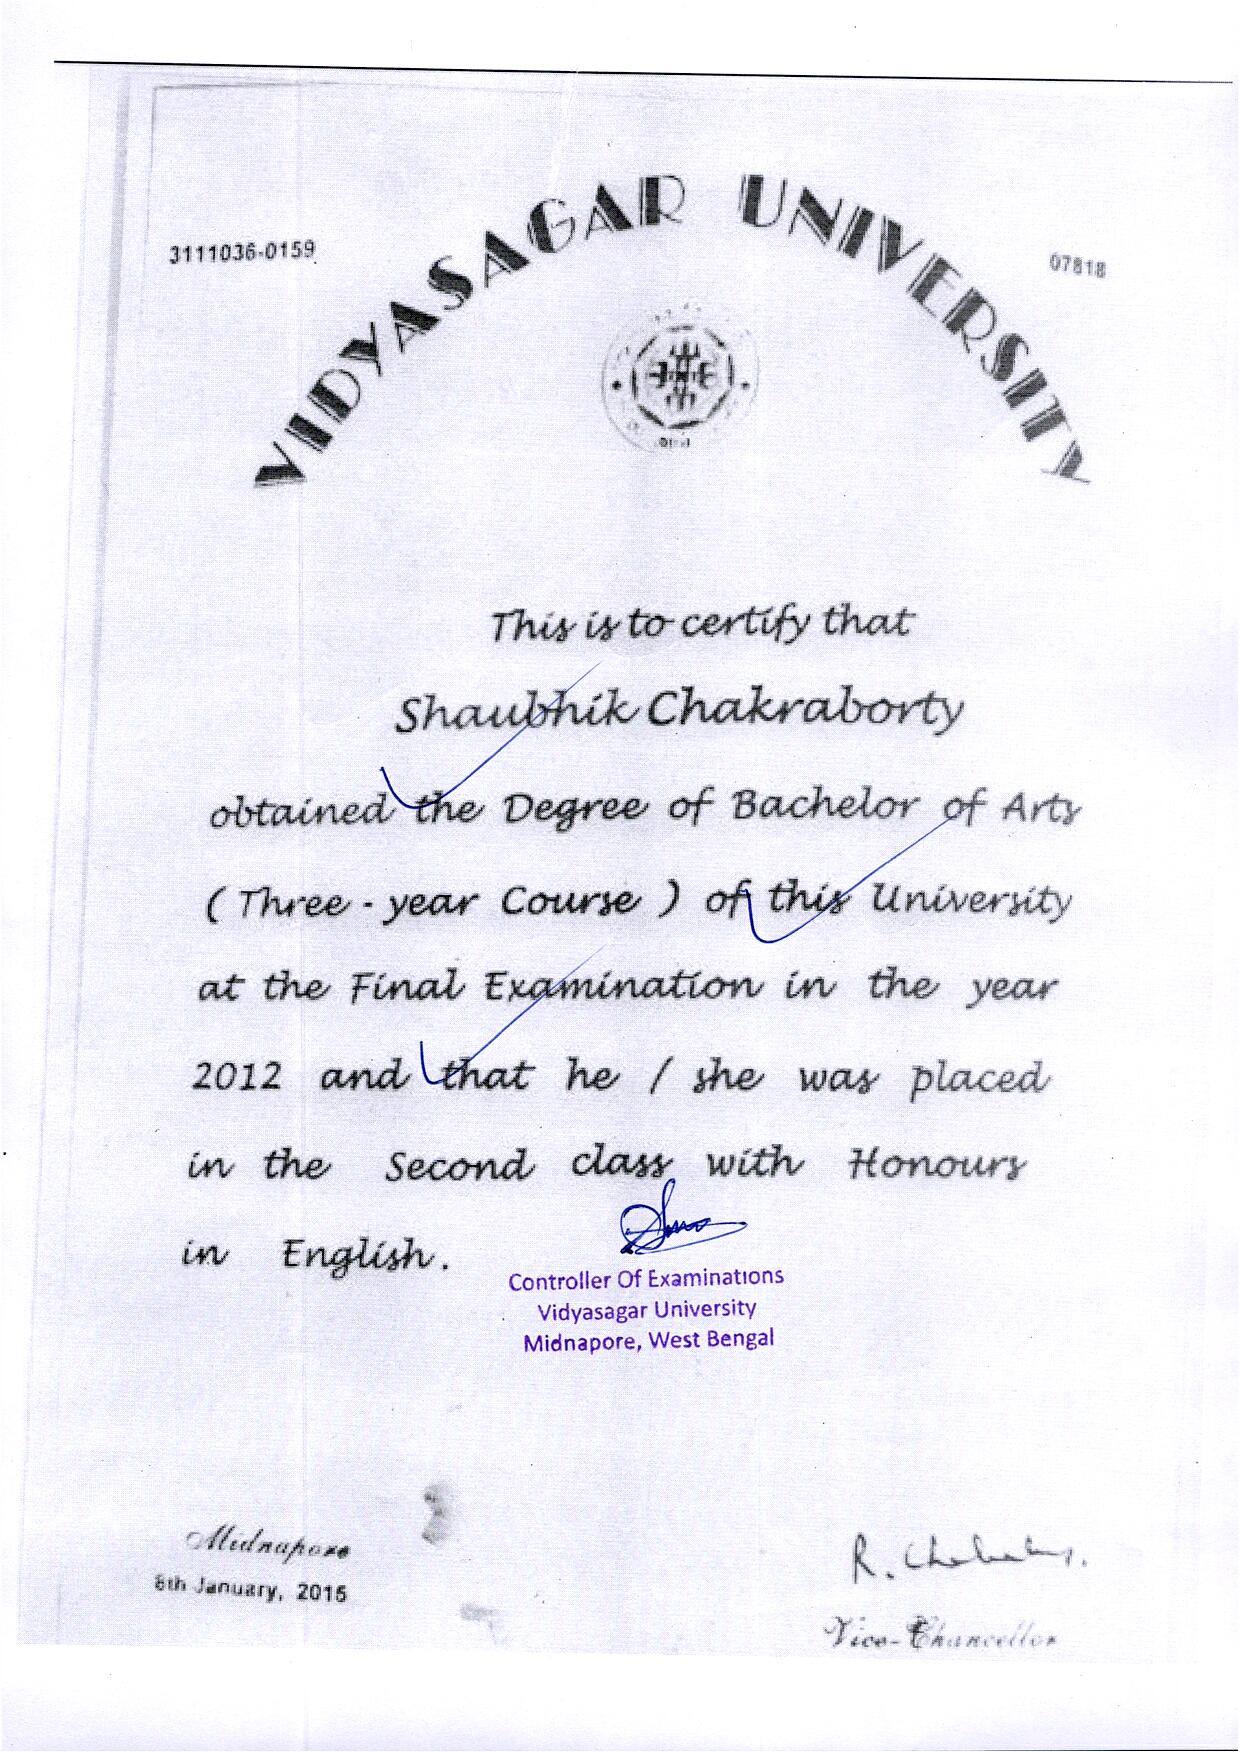 VIDYASAGAR UNIVERSITY
3111036-0159
07818
This is to certify that
Shaubhik Chakraborty
obtained the Degree of Bachelor of Arts
( Three - year Course ) of this University
at the Final Examination in the year
2012 and that he / she was placed
in the Second class with Honours
in English.
Controller Of Examinations
Vidyasagar University
Midnapore, West Bengal
Midnapore
January,
R.
Vice-Chancellor